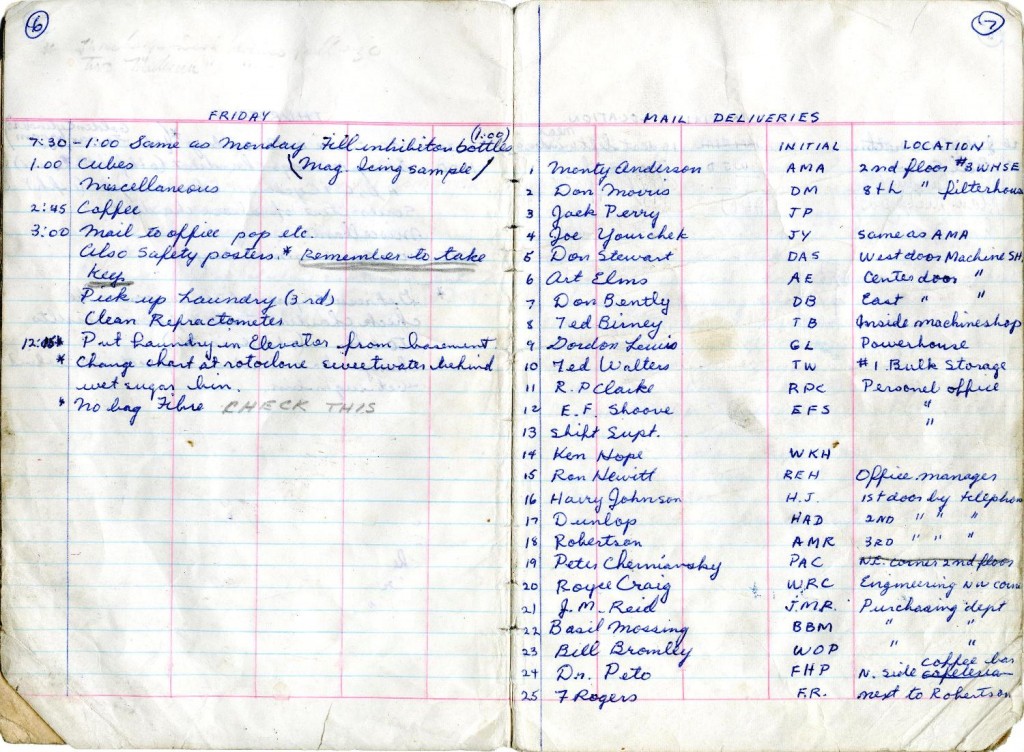 6
FRIDAY
(1:00)
7:30 - 1:00 Same as Monday Fill inhibitor bottles
1:00 Cubes (Mag. Icing sample)
Miscellaneous
2:45 Coffee
3:00 Mail to office pop etc.
Also Safety posters. * Remember to take
Keys
Pick up Laundry (3rd)
Clean Refractometer
* Put Laundry in Elevator from basement
* Change chart at rotoclone sweetwater behind
wet sugar bin.
* No bag Fibre CHECK THIS
7
MAIL DELIVERIES
INITIAL LOCATION
1 Monty Anderson AMA 2nd floor #3 WHSE
2 Don Morris DM 8th " filterhouse
3 Jack Perry JP
4 Joe Yourchek JY same as AMA
5 Don Stewart DAS West door Machine SH.
6 Art Elms AE Center door "
7 Don Bently DB East " "
8 Ted Birney TB Inside machine shop
9 Gordon Lewis GL Powerhouse
10 Ted Walters TW #1 Bulk Storage
11 R. P Clarke RPC Personel office
12 E. F. Shoove EFS "
13 Shift Supt. "
14 Ken Hope WKH
15 Ron Hewitt REH Office manager
16 Harry Johnson H.J. 1st door by telephon
17 Dunlop HAD 2ND " " "
18 Robertson AMR 3RD " " "
19 Peter Cherniavsky PAC N.E. corner 2nd floor
20 Royce Craig WRC Engineering NW corn
21 J. M. Reid J.M.R. Purchasing dept
22 Basil Mossing BBM " "
23 Bill Bromley WOP " "
coffee bar
24 Dr. Peto FHP N. side cafeterian
25 F Rogers F.R. next to Robertson